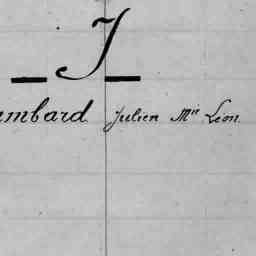 J
mbard Julien Mie Léon